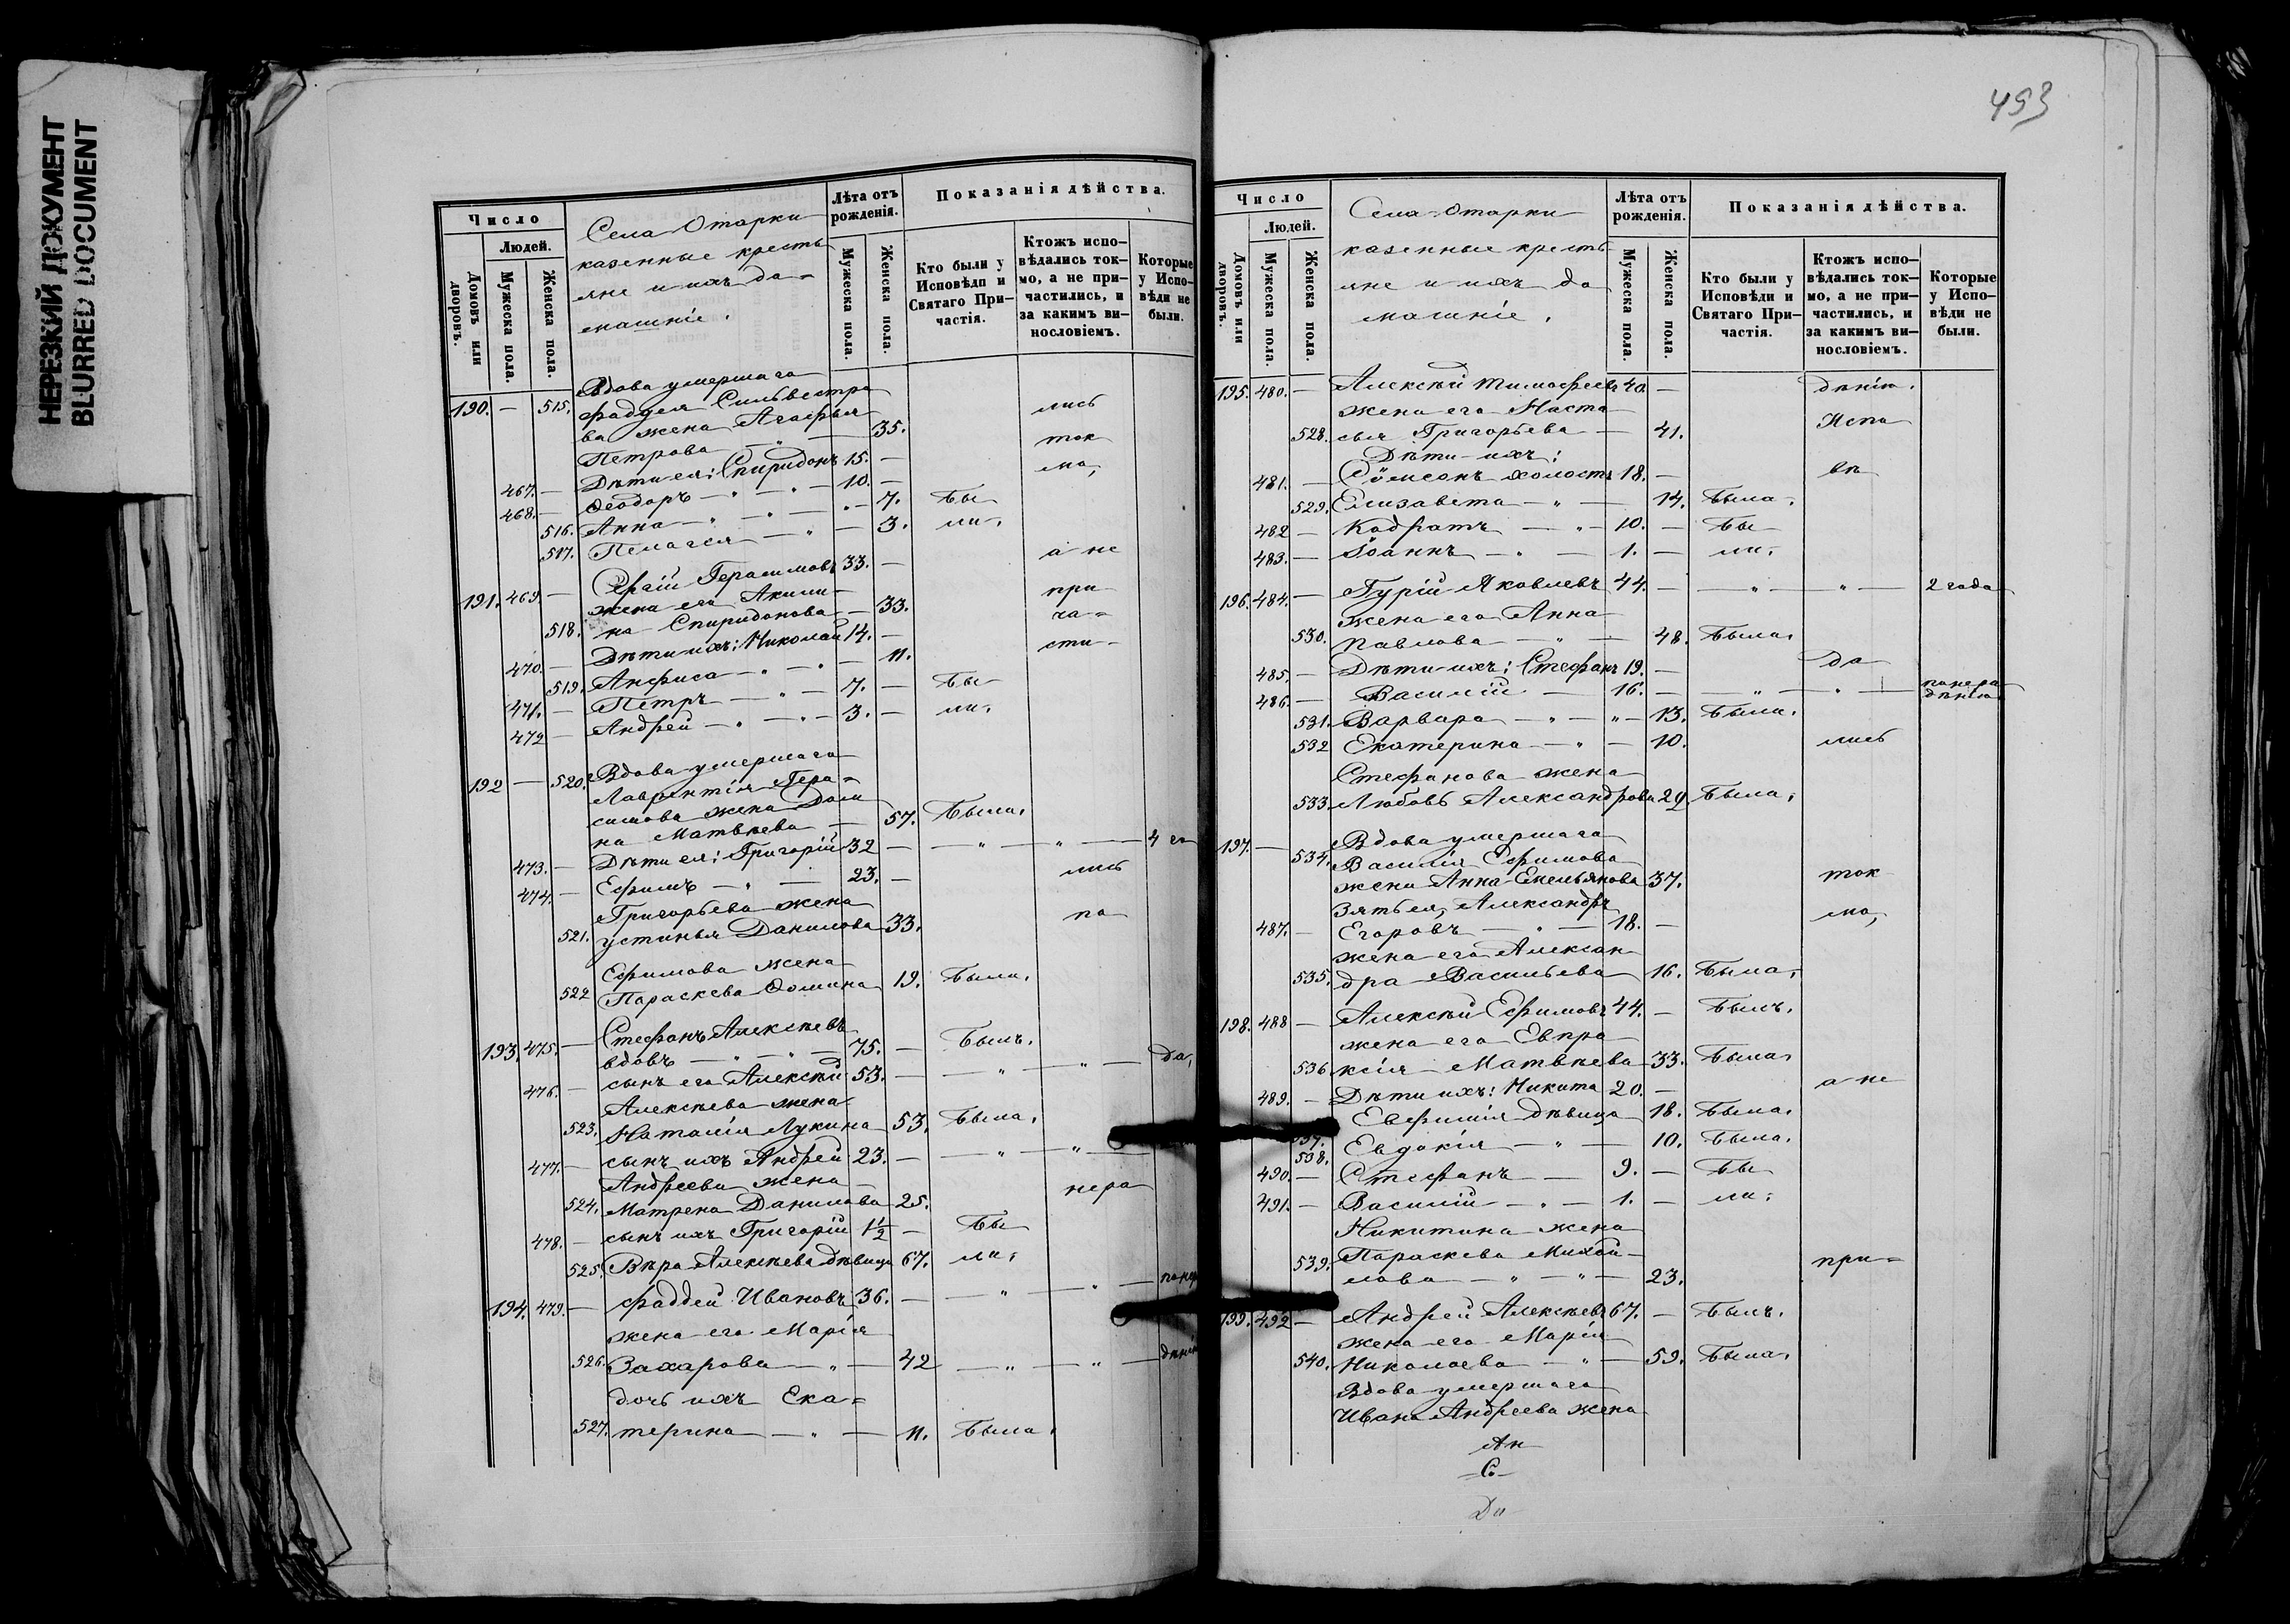 НЕРЕЗКИЙ ДОКУМЕНТ
BLURRED DOCUMENT
Число
Людей.
Домовъ или дворовъ.
Мужеска пола.
Женска пола.
Села Отарки
казенные кресть
яне и ихъ до=
машніе.
Лѣта отъ рожденія.
Мужеска пола.
Женска пола.
Показанія дѣйства.
Кто были у Исповѣди и Святаго Причастія.
Ктожъ исповѣдались токмо, а не причастились, и за какимъ винословіемъ.
Которые у Исповѣди не были.
190. — 515. Вдова умершаго
Фаддея Сильвестро
ва жена Агафья лись
Петрова — " — 35. ток
467. — Дѣти ея: Спиридонъ 15. — мо,
468. — Ѳеодоръ — " — " — 10. —
516. Анна — " — " — " — 7. Бы
517. Пелагея — " — 3. ли.
а не
191. 469. — Сергій Герасимовъ 33. —
жена его Акили при
518. на Спиридонова — 33. ча=
470. — Дѣти ихъ: Николай 14. — сти-
519. Анфиса — " — " — 11.
471. — Петръ — " — 7. — Бы
472 — Андрей — " — " — 3. — ли.
192 — 520. Вдова умершаго
Лаврентія Гера=
симова жена Дом
на Матвѣева — 57. Была.
473. — Дѣти ея: Григорій 32 — — " — " — 4 го
474. — Ефимъ — " — 23. — лись
Григорьева жена
521. Устинья Данилова 33. по
Ефимова жена
522 Параскева Ѳомина 19. Была.
193. 475. — Стефанъ Алексѣевъ
вдовъ — " — " — 75. — Былъ.
476. — сынъ его Алексѣй 53. — — " — " — да,
Алексѣева жена
523. Наталія Лукина 53. Была.
477. — сынъ ихъ Андрей 23. — — " — " —
Андреева жена
524. Матрена Данилова 25. нера
478. — сынъ ихъ Григорій 1½ — Бы
525. Вѣра Алексѣева дѣвица 67. ли.
194. 479. — Фаддей Ивановъ 36. — — " — " — по нер
жена его Марія
526. Захарова — " — 42 — " — " — дѣнію
дочь ихъ Ека=
527. терина — " — 11. Была.
453
Число
Людей.
Домовъ или дворовъ.
Мужеска пола.
Женска пола.
Села Отарки
казенные кресть
яне и ихъ до
машніе.
Лѣта отъ рожденія.
Мужеска пола.
Женска пола.
Показанія дѣйства.
Кто были у Исповѣди и Святаго Причастія.
Ктожъ исповѣдались токмо, а не причастились, и за какимъ винословіемъ.
Которые у Исповѣди не были.
195. 480. — Алексѣй Тимофеевъ 40. — дѣнію.
жена его Наста
528. сья Григорьева — 41. Испо
Дѣти ихъ:
481. — Сѵмеонъ холостъ 18. — вѣ
529. Елизавета — " — 14. Была.
482 — Кодратъ — " — 10. — Бы
483. — Іоаннъ — " — 1. — ли.
196. 484. — Гурій Яковлевъ 44. — — " — " — 2 года
жена его Анна
530. Павлова — " — 48. Была.
485. — Дѣти ихъ: Стефанъ 19. — да
486. — Василій — 16. — — " — " — по нера
дѣнію
531. Варвара — " — " — 13. Была.
532 Екатерина — " — 10. лись
Стефанова жена
533. Любовь Александрова 22. Была.
197. — 534. Вдова умершаго
Василія Ефимова
жена Анна Емельянова 37. ток
Зять ея, Александръ мо,
487. — Егоровъ — " — 18. —
жена его Алексан
535. дра Васильева 16. Была.
198. 488 — Алексѣй Ефимовъ 44. — Былъ.
жена его Евпра
536 ксія Матвѣева 33. Была.
489. — Дѣти ихъ: Никита 20. — а не
537. Евфимія дѣвица 18. Была.
538. Евдокія — " — 10. Была.
490. — Стефанъ — 9. — Бы
491. — Василій — " — 1. — ли.
Никитина жена
539. Параскева Михай-
лова — " — " — 23. при=
199. 492 — Андрей Алексѣевъ 67. — Былъ.
жена его Марія
540. Николаева — " — 59. Была.
Вдова умершаго
Ивана Андреева жена
Ан